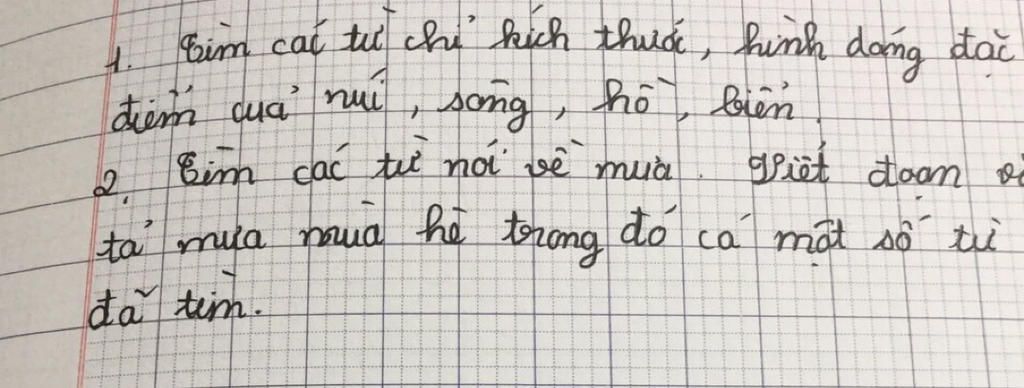 1. Tìm các từ chỉ kích thước, hình dáng đặc
điểm của núi, sông, hồ, biển.
2. Tìm các từ nói về mưa. Viết đoạn
tả mưa mùa hè trong đó có một số từ
đã tìm.